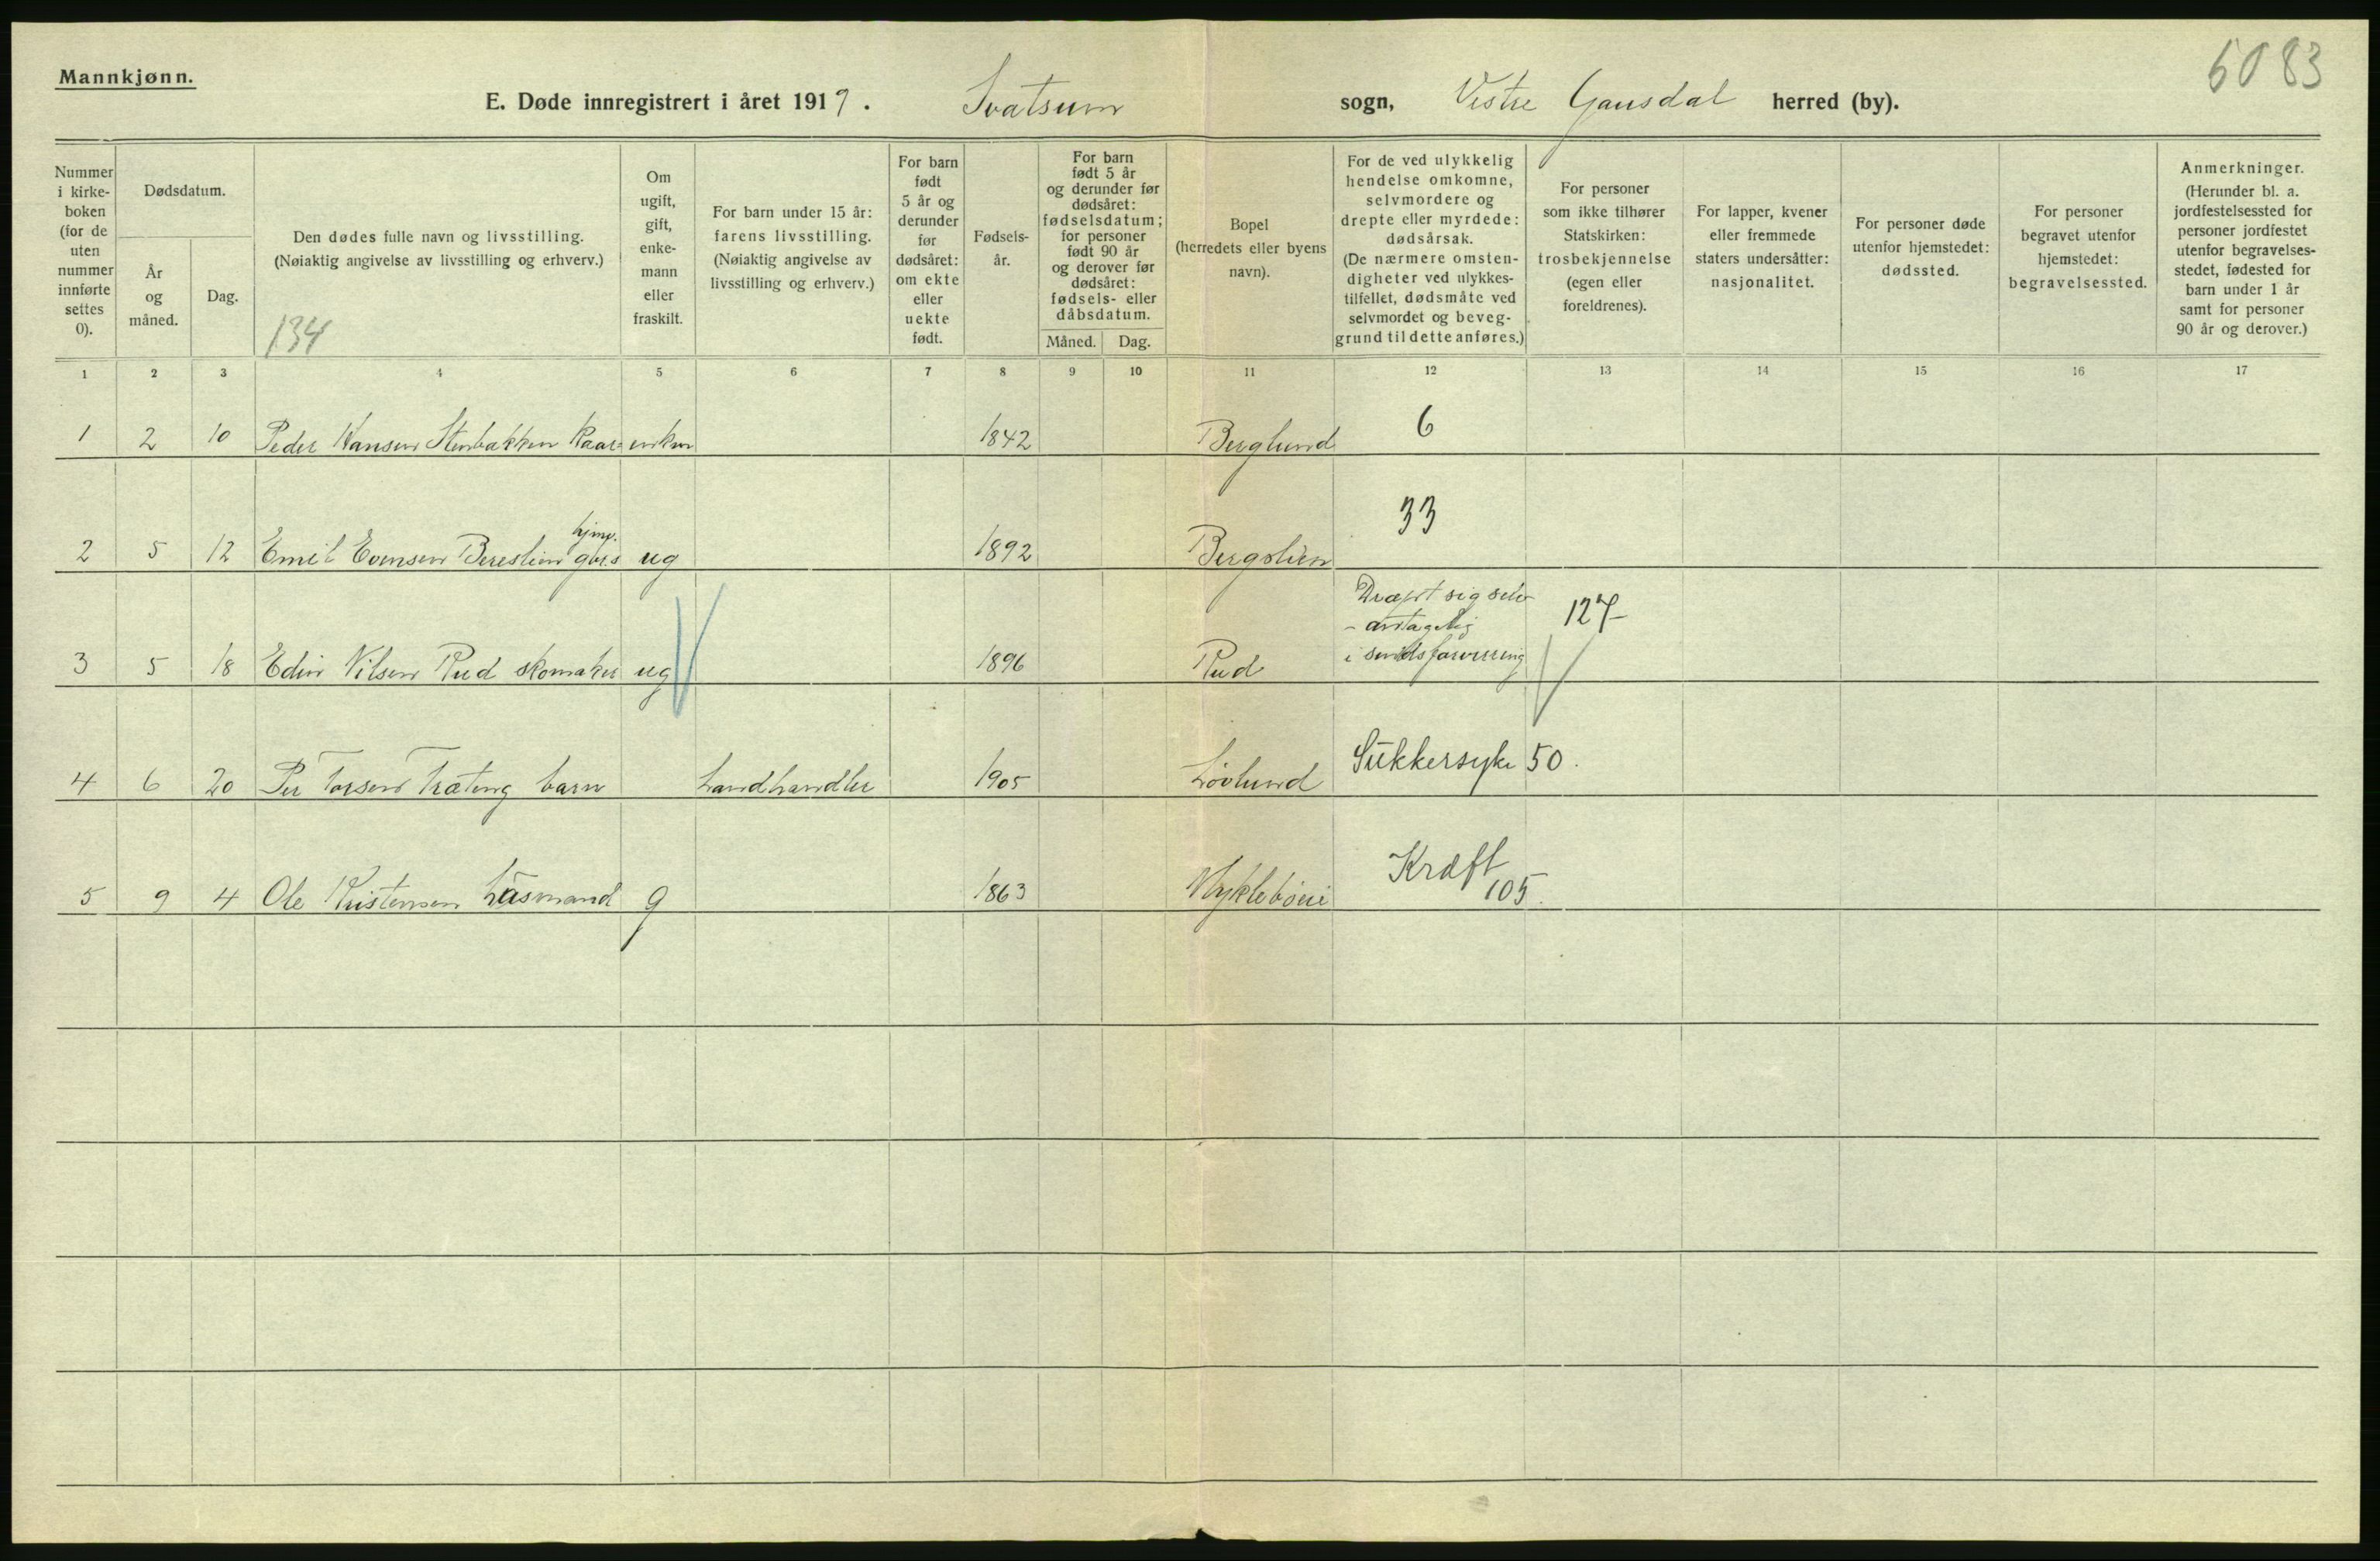 Mannkjønn.
6083
E. Døde innregistrert i året 1919. Svatsum sogn, Vestre Gausdal herred (by).
Nummer i kirke-boken (for de uten nummer innførte settes 0).
Dødsdatum.
År og måned.
Dag.
Den dødes fulle navn og livsstilling.
(Nøiaktig angivelse av livsstilling og erhverv.)
134
Om ugift, gift, enke-mann eller fraskilt.
For barn under 15 år: farens livsstilling. (Nøiaktig angivelse av livsstilling og erhverv.)
For barn født 5 år og derunder før dødsåret: om ekte eller uekte født.
Fødsels-år.
For barn født 5 år og derunder før dødsåret: fødselsdatum; for personer født 90 år og derover før dødsåret: fødsels- eller dåbsdatum.
Måned. Dag.
Bopel (herredets eller byens navn).
For de ved ulykkelig hendelse omkomne, selvmordere og drepte eller myrdede: dødsårsak. (De nærmere omsten-digheter ved ulykkes-tilfellet, dødsmåte ved selvmordet og beveg-grund til dette anføres.)
For personer som ikke tilhører Statskirken: trosbekjennelse (egen eller foreldrenes).
For lapper, kvener eller fremmede staters undersåtter: nasjonalitet.
For personer døde utenfor hjemstedet: dødssted.
For personer begravet utenfor hjemstedet: begravelsessted.
Anmerkninger. (Herunder bl. a. jordfestelsessted for personer jordfestet utenfor begravelses-stedet, fødested for barn under 1 år samt for personer 90 år og derover.)
1 2 3 4 5 6 7 8 9 10 11 12 13 14 15 16 17
1 2 10 Peder Hansen Stenbakken Kaar 1842 Berglund 6
2 5 12 Emil Evensen hjmv. gbr.s ug 1892 Bergslien 33
3 5 18 Edvin Nilsen Rud skomaker ug 1896 Rud Dræpt sig selv - antagelig i sindsforvirring 127
4 6 20 Per Torsen Træteng barn Landhandler 1905 Løvlund Sukkersyke 50.
5 9 4 Ole Kristensen Husmand g 1863 Kræft 105.